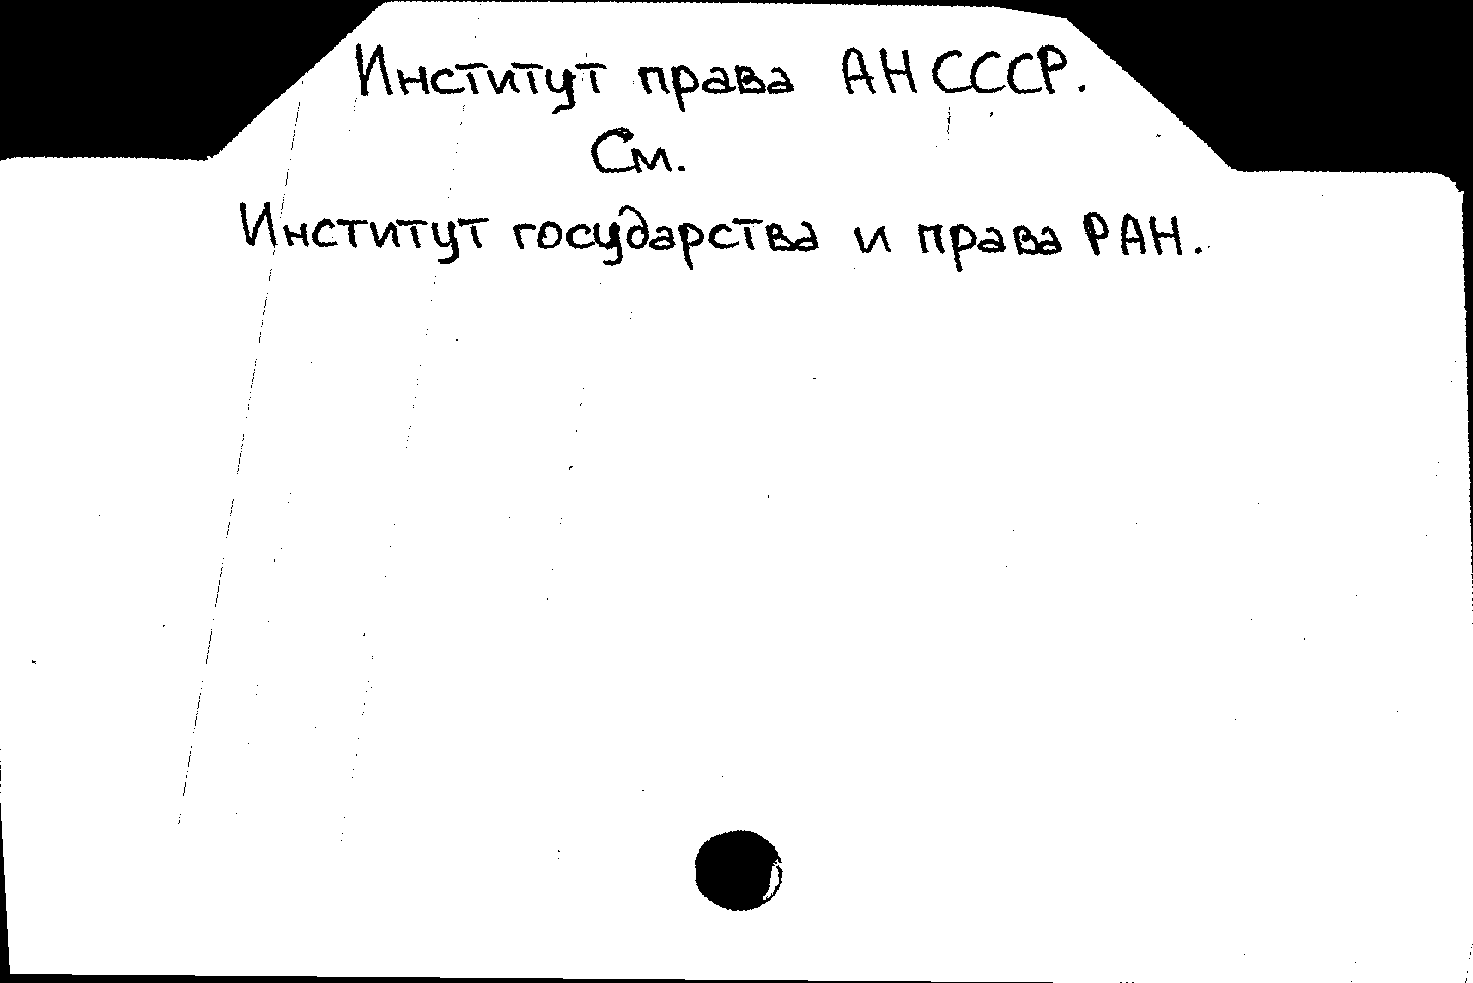 Институт права АН СССР.
См.
Институт государства и права РАН.